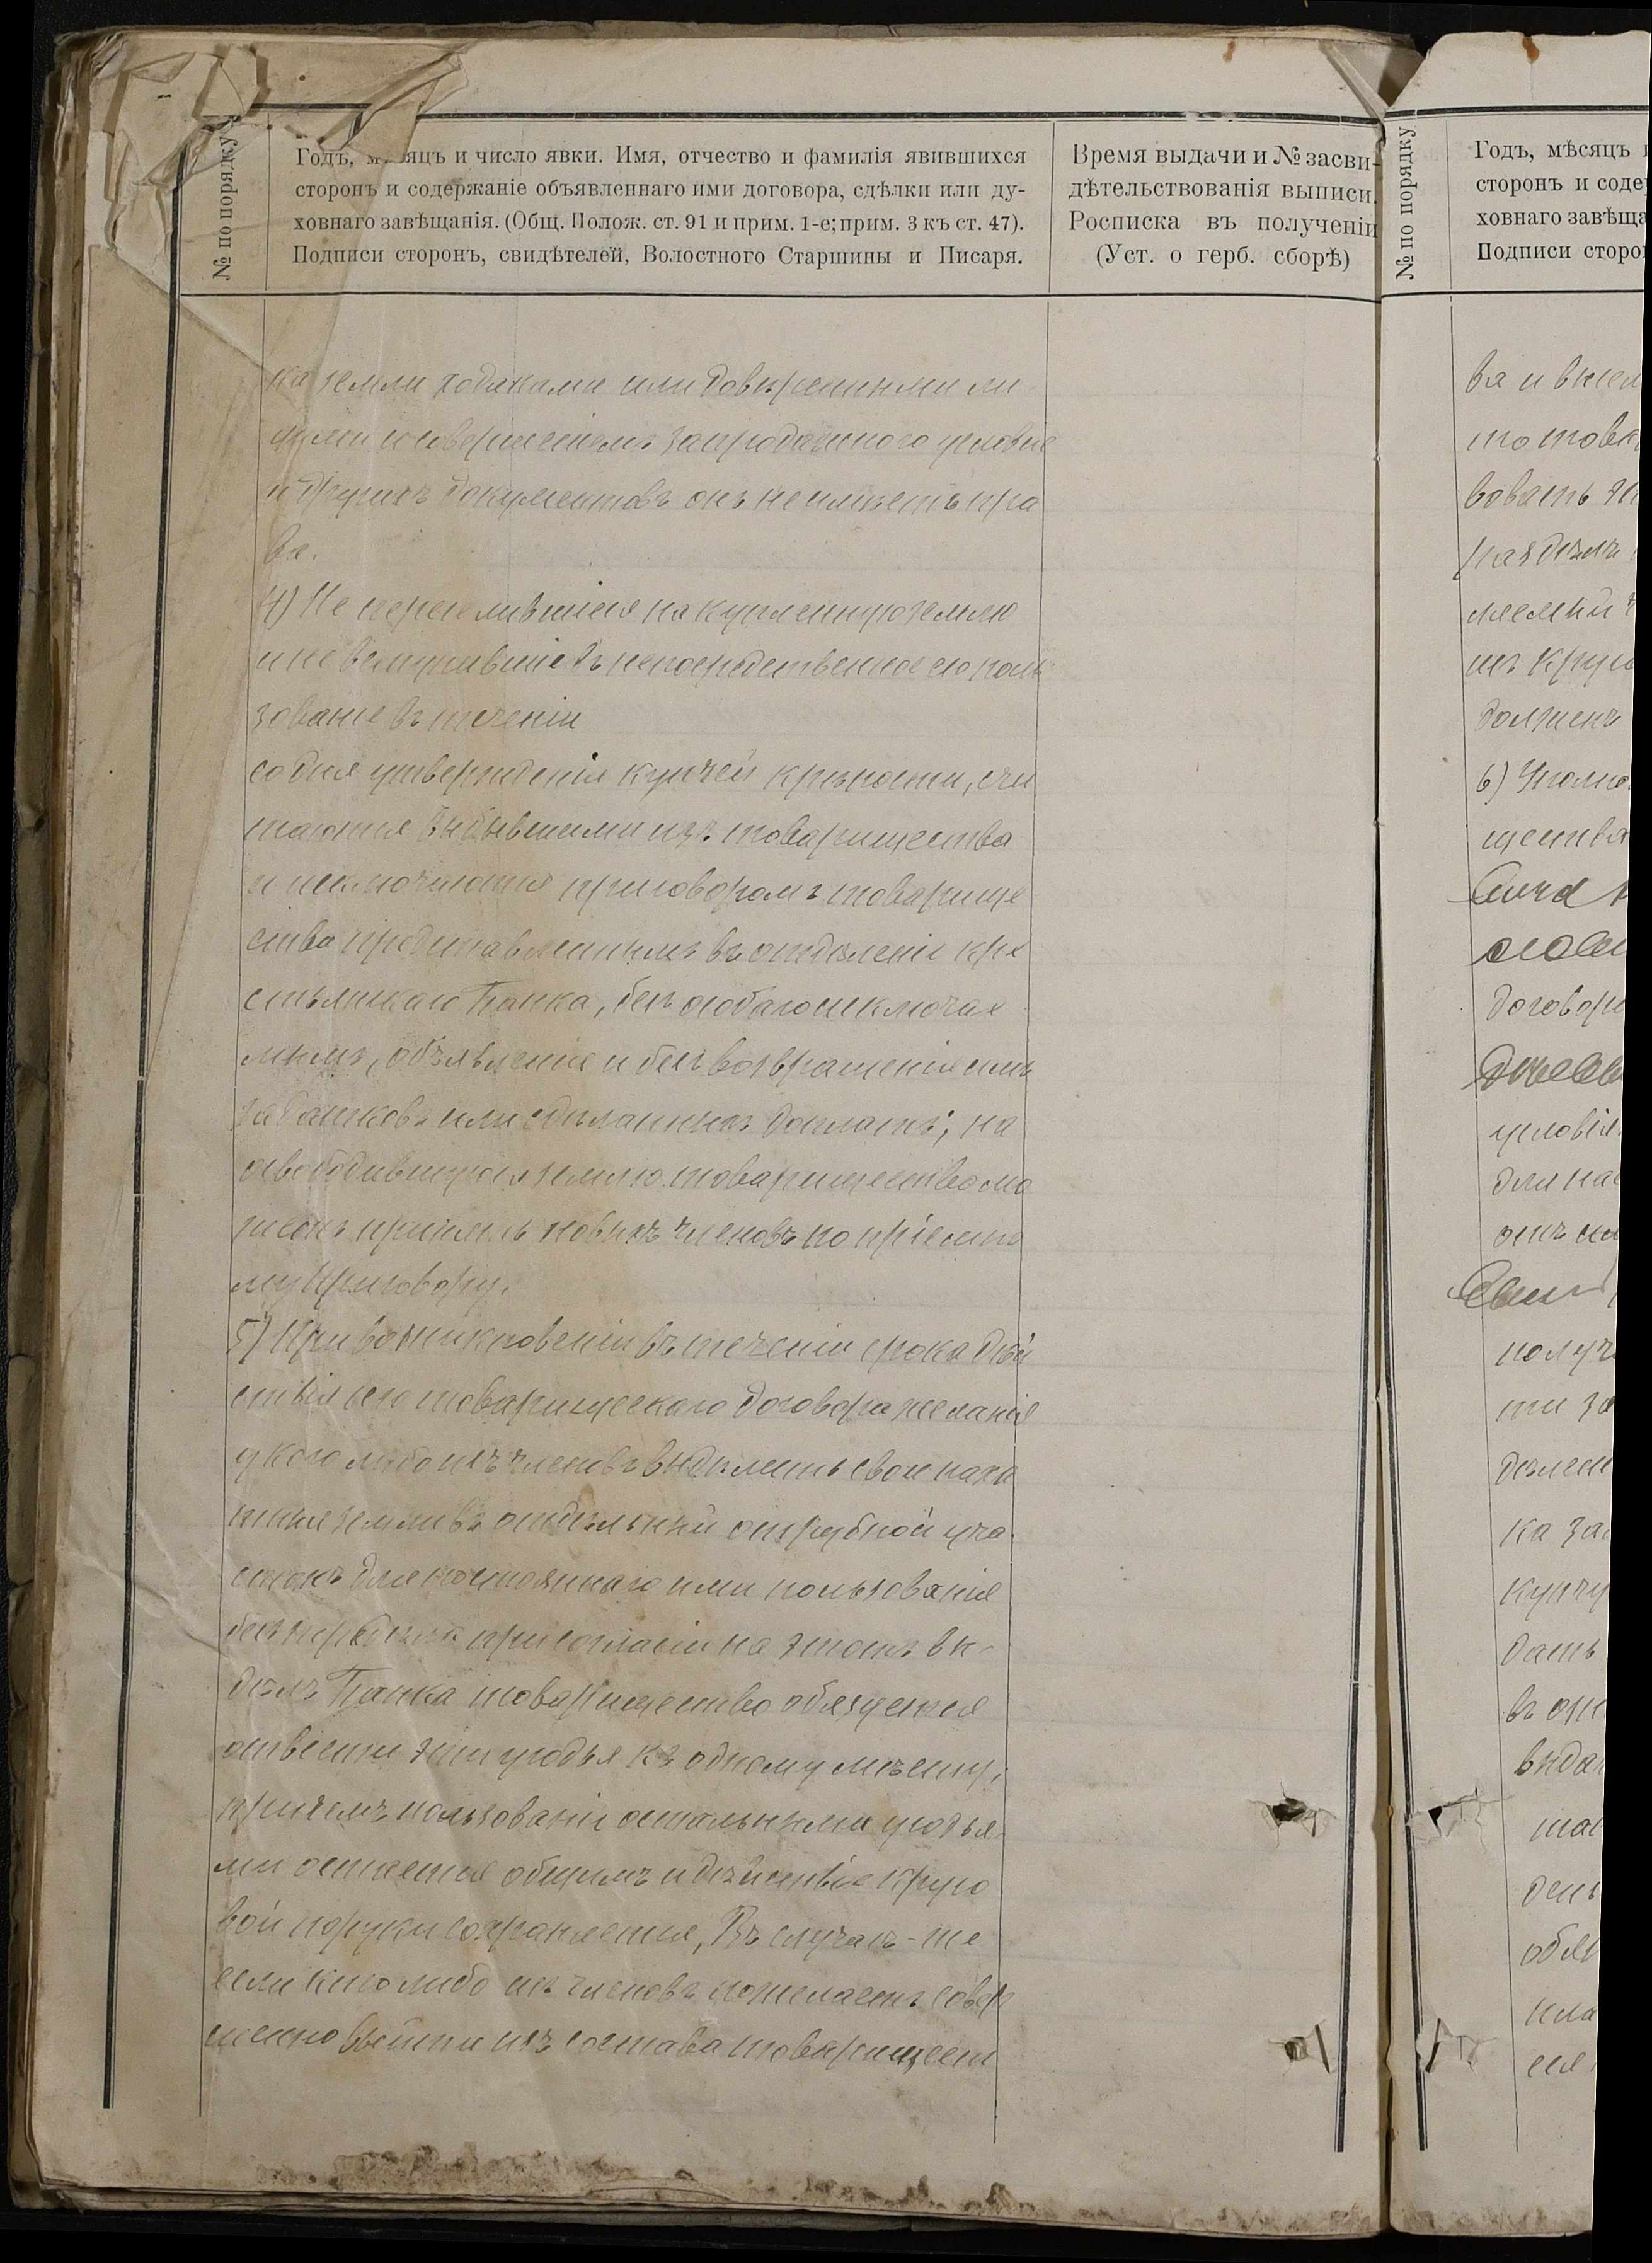 № по порядку
Годъ, мѣсяцъ и число явки. Имя, отчество и фамилія явившихся
сторонъ и содержаніе объявленнаго ими договора, сдѣлки или ду-
ховнаго завѣщанія. (Общ. Полож. ст. 91 и прим. 1-е; прим. 3 къ ст. 47).
Подписи сторонъ, свидѣтелей, Волостного Старшины и Писаря.
Время выдачи и № засви-
дѣтельствованія выписи.
Росписка въ полученіи
(Уст. о герб. сборѣ)
ка земли ходаками или довѣренными ли
цами и совершеніемъ запродажного условіе
и другихъ документовъ онъ не имѣетъ пра
ва.
4) Не переселившіеся на купленную землю
и не вступившіе въ непосредственное ею поль
зованіе въ теченіи
со дня утвержденія купчей крѣпости, счи
таются выбывшими изъ товарищества
и исключаются приговоромъ товарище
ства представленнымъ въ отдѣленіе кре
стьянскаго Банка, безъ особаго исключае
мымъ, объявленія и безъ возвращенія имъ
задатковъ или сдѣланныхъ доплатъ; на
освободившуюся землю товарищество мо
жетъ принять новыхъ членовъ по пріемно
му приговору.
5) При возникновеніи въ теченіи срока дѣй
ствія сего товарищескаго договора желанія
у кого либо изъ членовъ выдѣлить свои паха
тныя земли въ отдѣльный отрубной уча
стокъ для постояннаго ими пользованія
безъ передѣла при согласіи на этотъ вы-
дѣлъ Банка товарищество обязуется
отвести эти угодья къ одному мѣсту;
причемъ пользованіе остальными угодья
ми остается общимъ и дѣйствіе круго
вой поруки сохраняется, Въ случаѣ-же
если кто либо изъ членовъ пожелаетъ совер
шенно выйти изъ состава товарищест
№ по порядку
Годъ, мѣсяцъ
сторонъ и соде
ховнаго завѣща
Подписи сторо
ва и
вовать
раздѣлъ
изъ круг
долженъ
6) Уполно
щества
договор
условія
для на
отъ
получ
ти за
дѣлен
ка за
купчу
дать
въ
выда
день
обяз
пла
ся